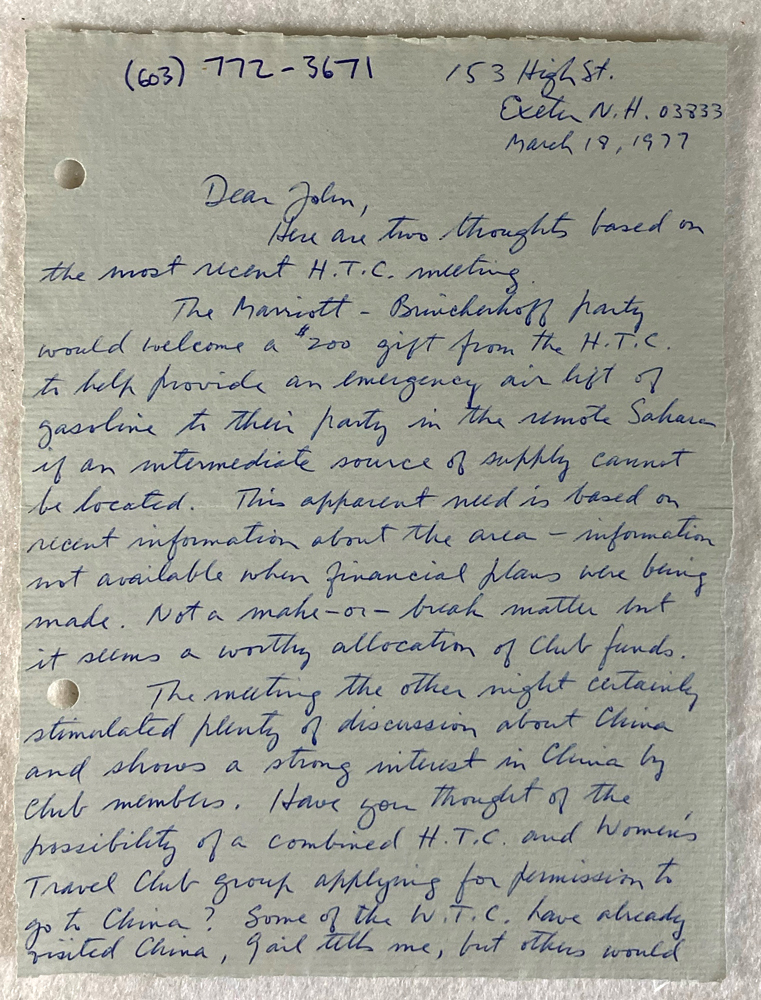 (603) 772-3671 153 High St.
Exeter N.H. 03833
March 18, 1977
Dear John,
Here are two thoughts based on
the most recent H.T.C. meeting.
The Marriott - Brincherhoff party
would welcome a $200 gift from the H.T.C.
to help provide an emergency air lift of
gasoline to their party in the remote Sahara
if an intermediate source of supply cannot
be located. This apparent need is based on
recent information about the area - information
not available when financial plans were being
made. Not a make-or-break matter but
it seems a worthy allocation of Club funds.
The meeting the other night certainly
stimulated plenty of discussion about China
and shows a strong interest in China by
Club members. Have you thought of the
possibility of a combined H.T.C. and Women's
Travel Club group applying for permission to
go to China? Some of the W.T.C. have already
visited China, Gail tells me, but others would